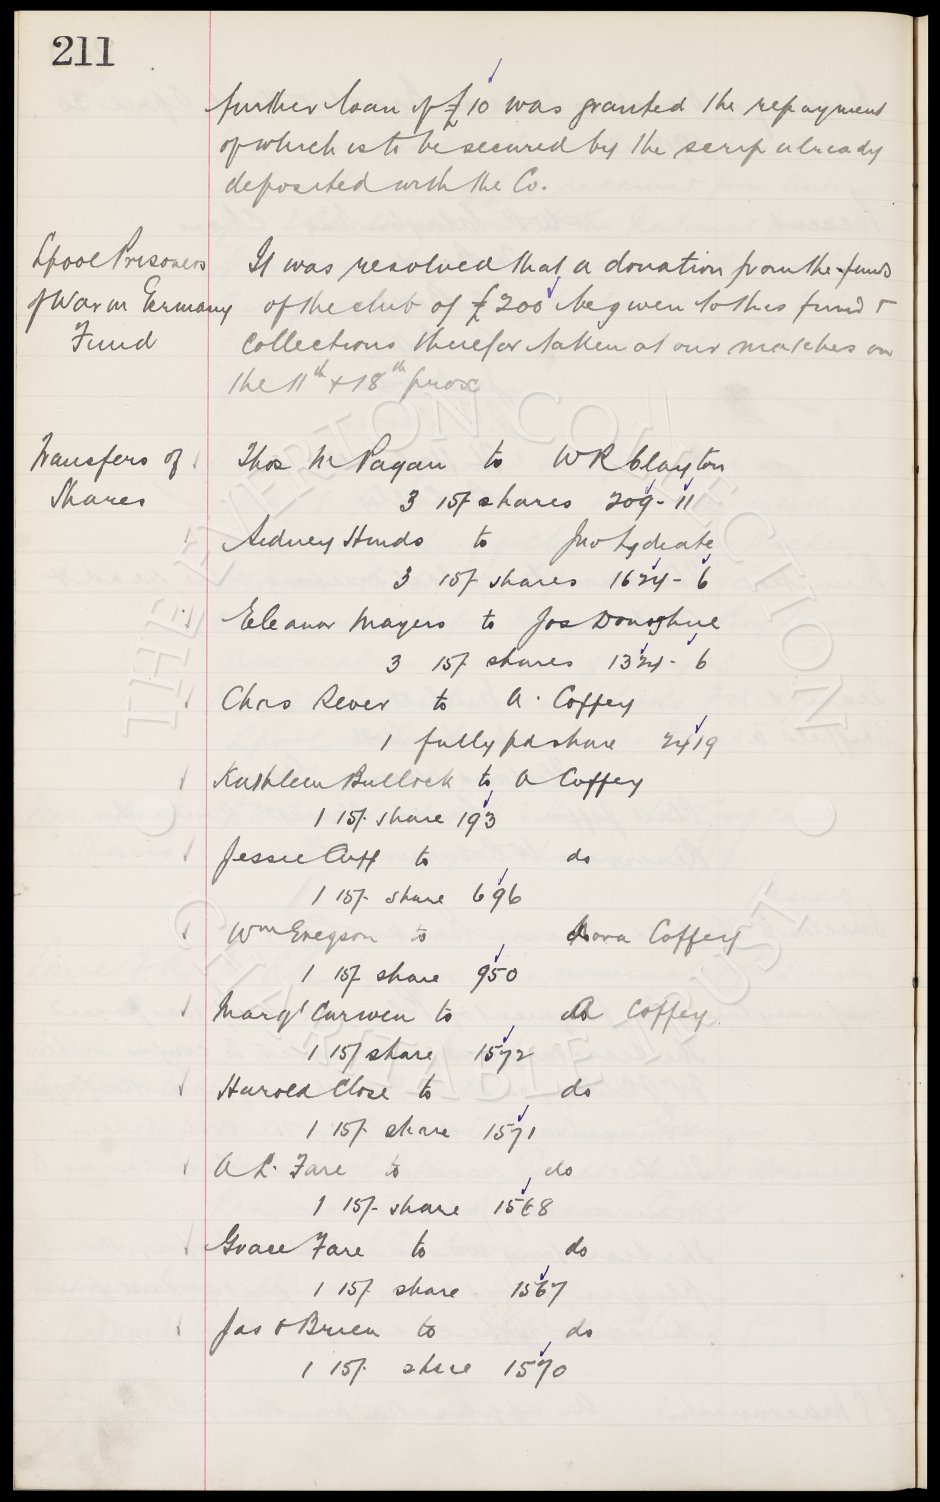 211
further loan of £10 was granted the repayment
of which is to be secured by the scrip already
deposited with the Co.
Lpool Prisoners
of War in Germany
Fund
It was resolved that a donation from the funds
of the club of £200 be given to this fund &
collections therefor taken at our matches on
the 11th & 18th prox
Transfers of
Shares
Thos M Pagan to W R Clayton
3 15/- shares 209-11
Sidney Hinds to Jno Lydiate
3 15/- shares 1624-6
Eleanor Mayers to Jos Donoghue
3 15/- shares 1324-6
Chas Rever to A. Coffey
1 fully pd share 2419
Kathleen Bullock to A Coffey
1 15/- share 193
Jessie Cuff to do
1 15/- share 696
Wm Gregson to Nora Coffey
1 15/- share 950
Margt Curwen to A Coffey
1 15/ share 1572
Harold Close to do
1 15/- share 1571
A L. Fare to do
1 15/- share 1568
Grace Fare to do
1 15/- share 1567
Jas O Brien to do
1 15/- share 1570
THE EVERTON COLLECTION
CHARITABLE TRUST